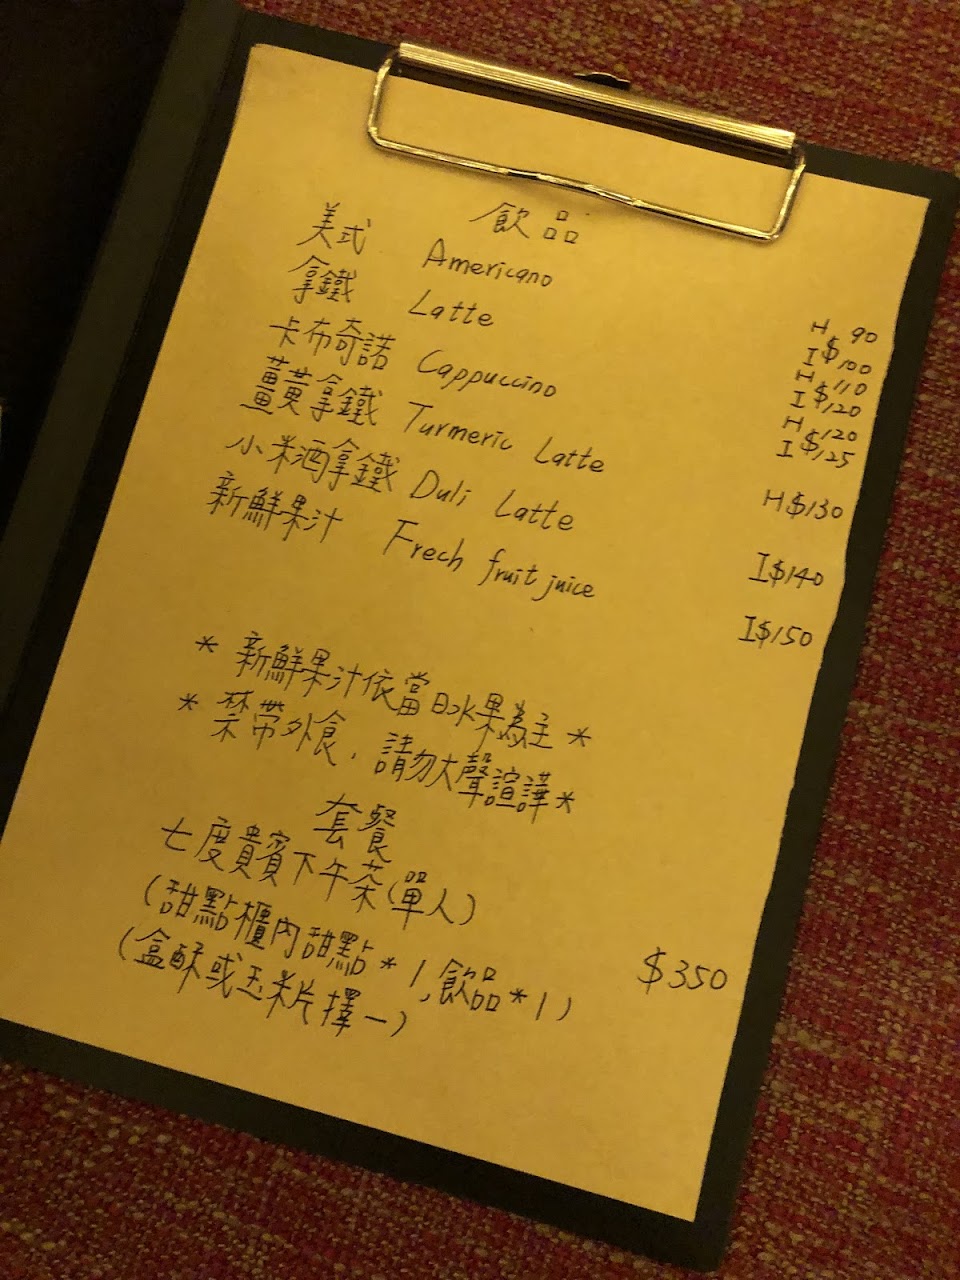 飲品
美式 Americano H 90
I $100
拿鐵 Latte H 110
I $120
卡布奇諾 Cappuccino H 120
I $125
薑黃拿鐵 Turmeric Latte H $130
小米酒拿鐵 Duli Latte I $140
新鮮果汁 Frech fruit juice I $150
* 新鮮果汁依當日水果為主 *
* 禁帶外食，請勿大聲諠譁 *
套餐
七度貴賓下午茶(單人) $350
(甜點櫃內甜點*1,飲品*1)
(盒酥或玉米片擇一)